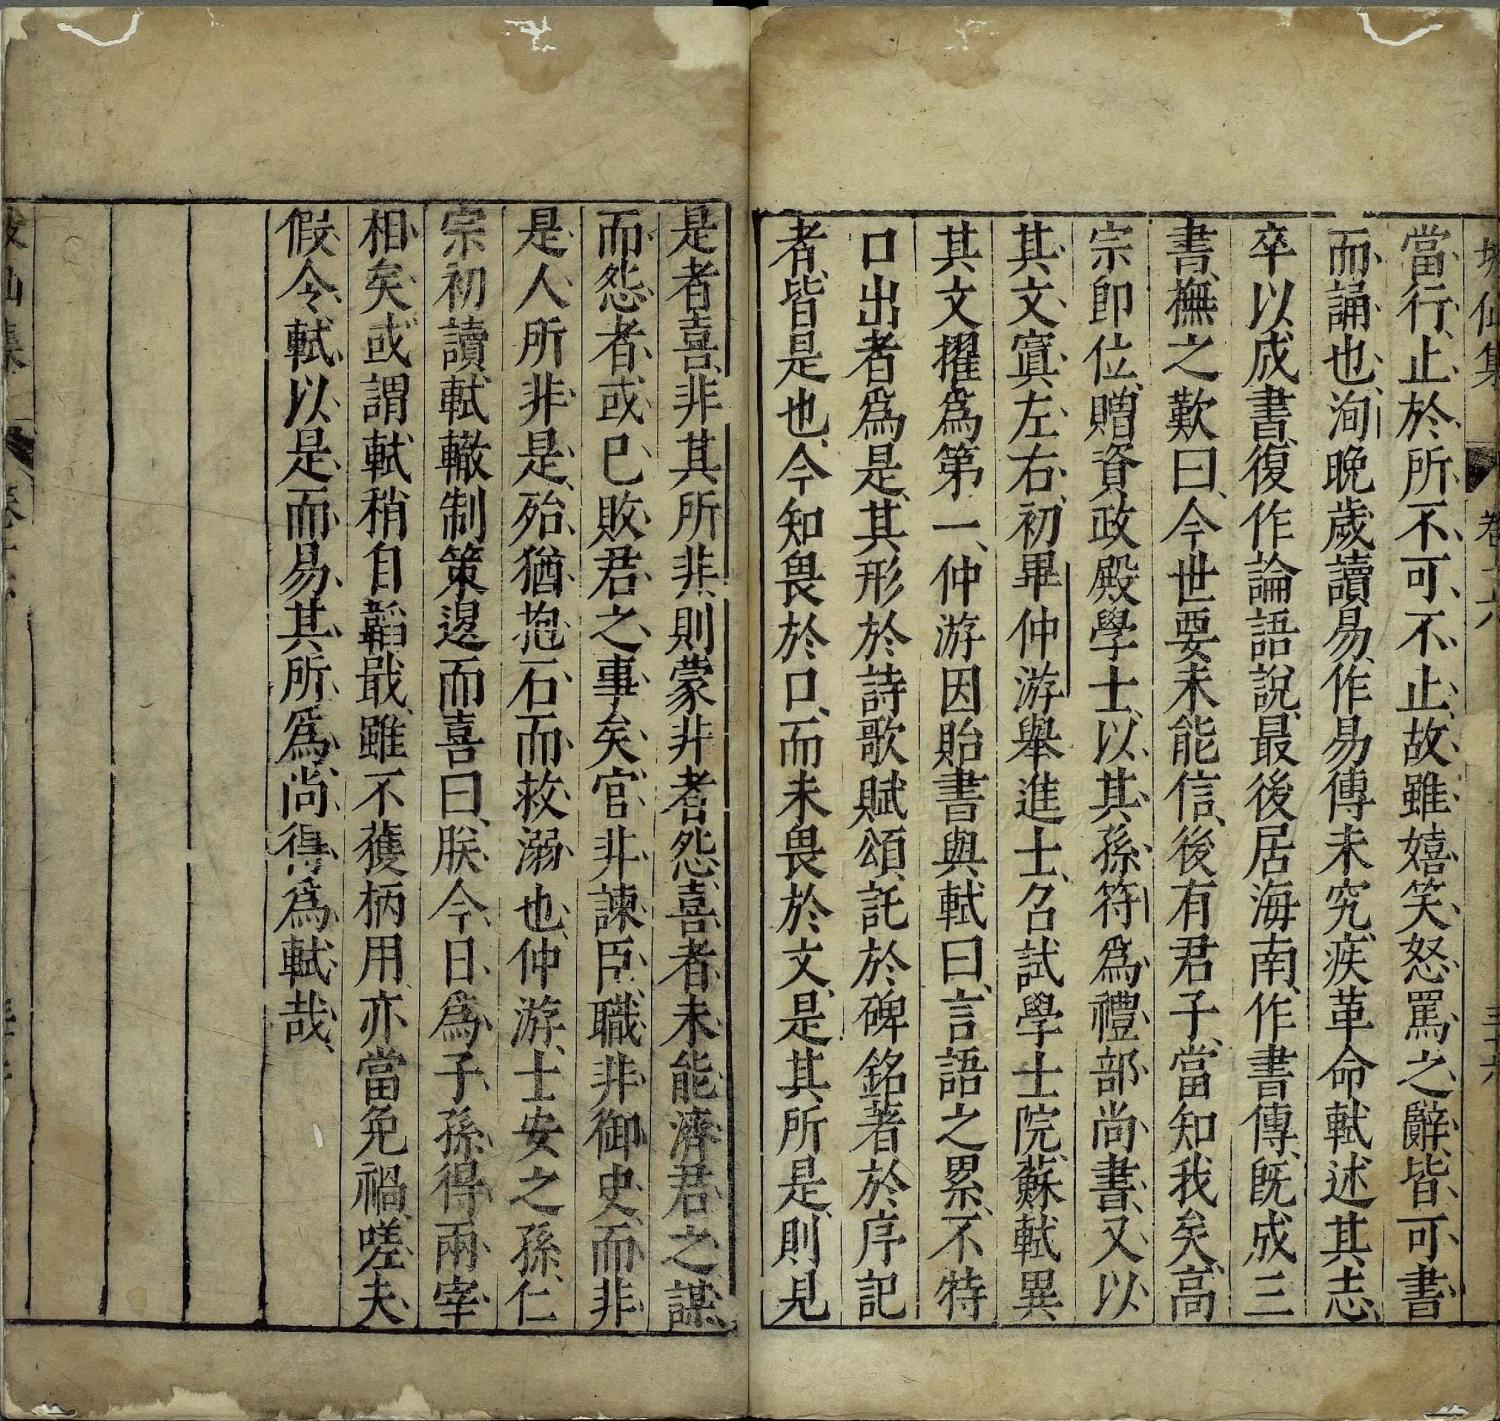 坡仙集 卷十六 三十六
當行止於所不可不止故雖嬉笑怒罵之辭皆可書
而誦也洵晚歲讀易作易傳未究疾革命軾述其志
卒以成書復作論語說最後居海南作書傳既成三
書撫之歎曰今世要未能信後有君子當知我矣高
宗即位贈資政殿學士以其孫符為禮部尚書又以
其文寘左右初畢仲游舉進士召試學士院蘇軾異
其文擢為第一仲游因貽書與軾曰言語之累不特
口出者為是其形於詩歌賦頌託於碑銘著於序記
者皆是也今知畏於口而未畏於文是其所是則見
是者喜非其所非則蒙非者怨喜者未能濟君之謀
而怨者或已敗君之事矣官非諫臣職非御史而非
是人所非是殆猶抱石而救溺也仲游士安之孫仁
宗初讀軾轍制策退而喜曰朕今日為子孫得兩宰
相矣或謂軾稍自韜戢雖不獲柄用亦當免禍嗟夫
假令軾以是而易其所為尚得為軾哉